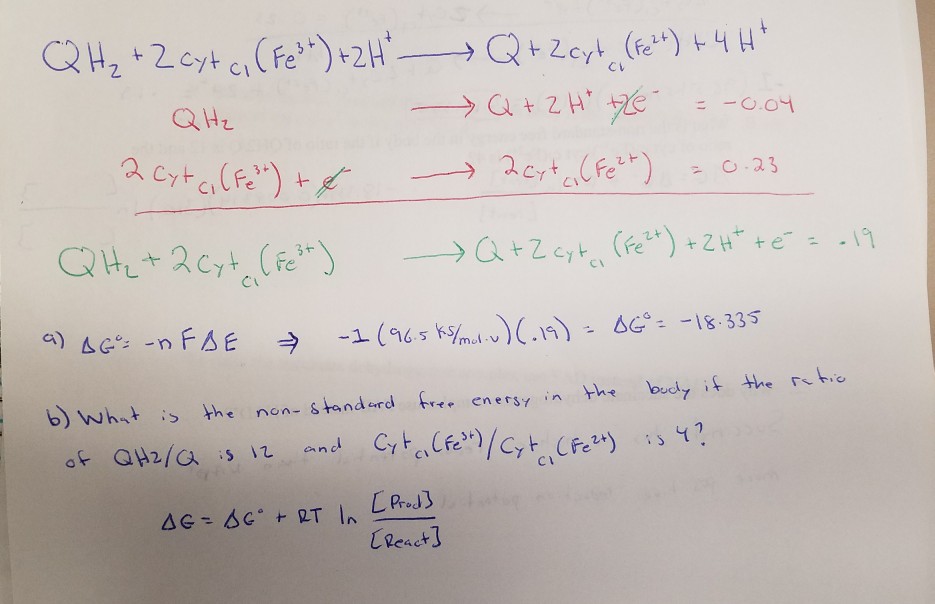 QH₂ + 2 cyt c₁ (Fe³⁺) + 2H⁺ ⟶ Q + 2 cyt c₁ (Fe²⁺) + 4 H⁺
QH₂ ⟶ Q + 2 H⁺ + 2e⁻ = -0.04
2 Cyt c₁ (Fe³⁺) + e⁻ ⟶ 2 cyt c₁ (Fe²⁺) = 0.23
QH₂ + 2 cyt c₁ (Fe³⁺) ⟶ Q + 2 cyt c₁ (Fe²⁺) + 2H⁺ + e⁻ = .19
a) ΔG°= -n F ΔE ⇒ -1 (96.5 KJ/mol.v) (.19) = ΔG° = -18.335
b) What is the non-standard free energy in the body if the ratio
of QH2/Q is 12 and Cyt c₁ (Fe³⁺) / Cyt c₁ (Fe²⁺) is 4?
ΔG = ΔG° + RT ln [Prod]/[React]